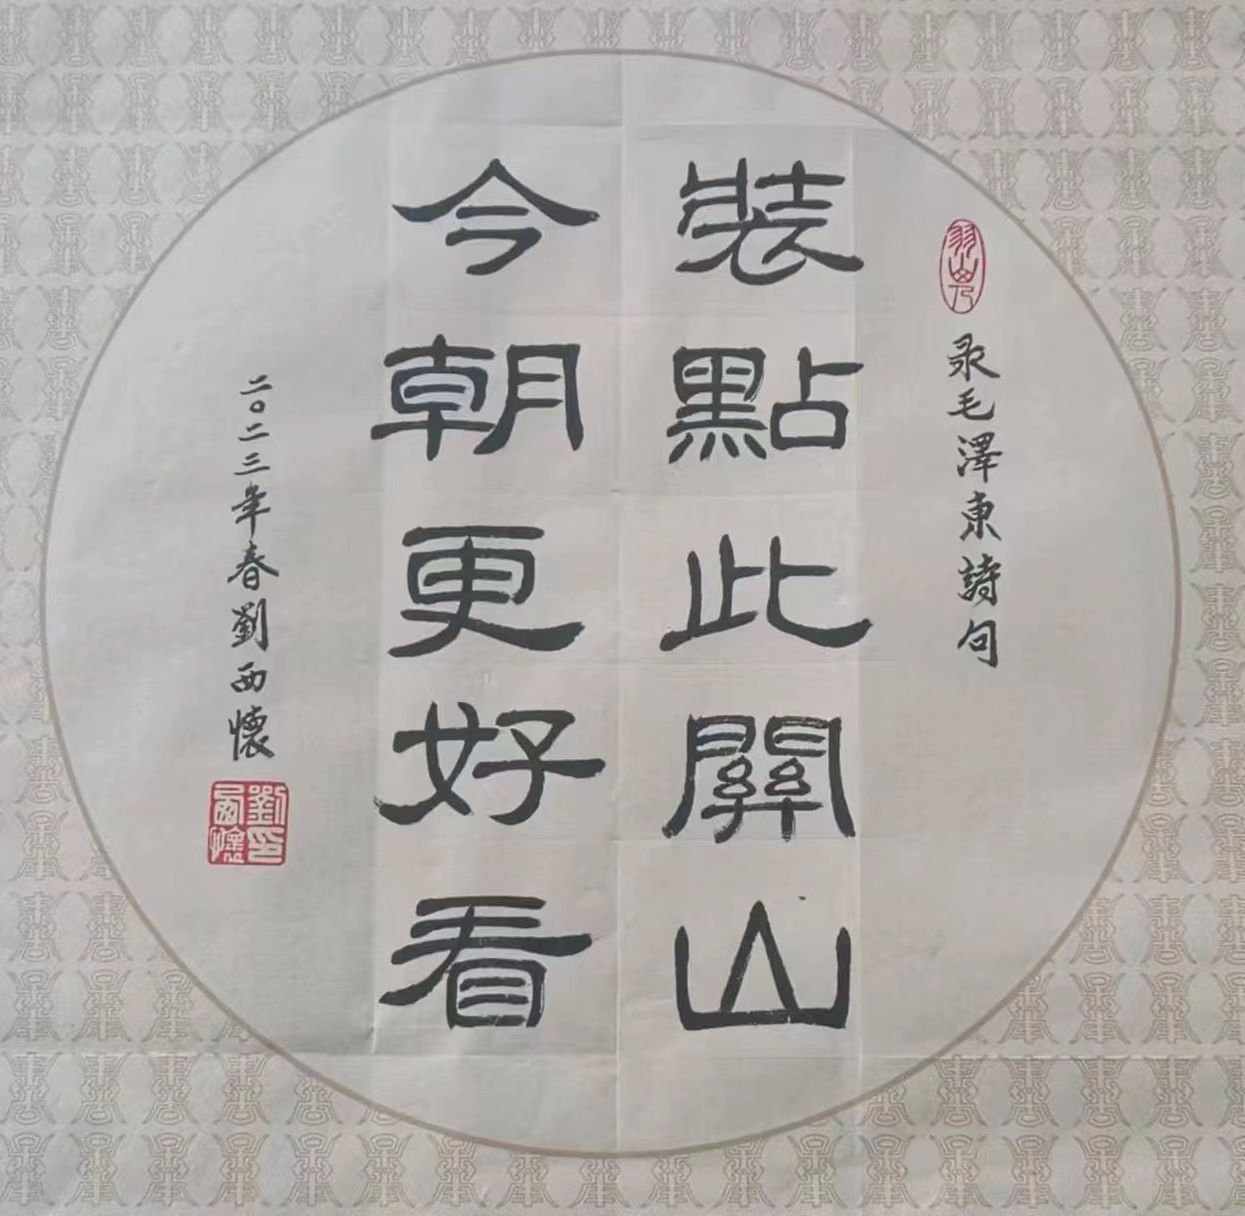 录毛澤東詩句
裝點此關山
今朝更好看
二〇二三年春劉西懷
劉西懷印